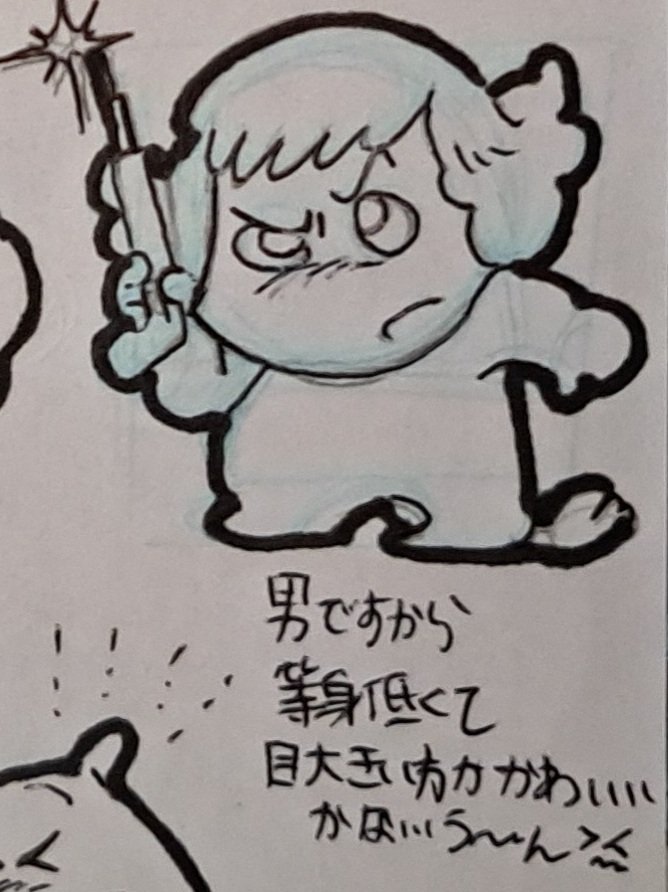 男ですから
等身低くて
目大きい方がかわいい
かない う〜ん><